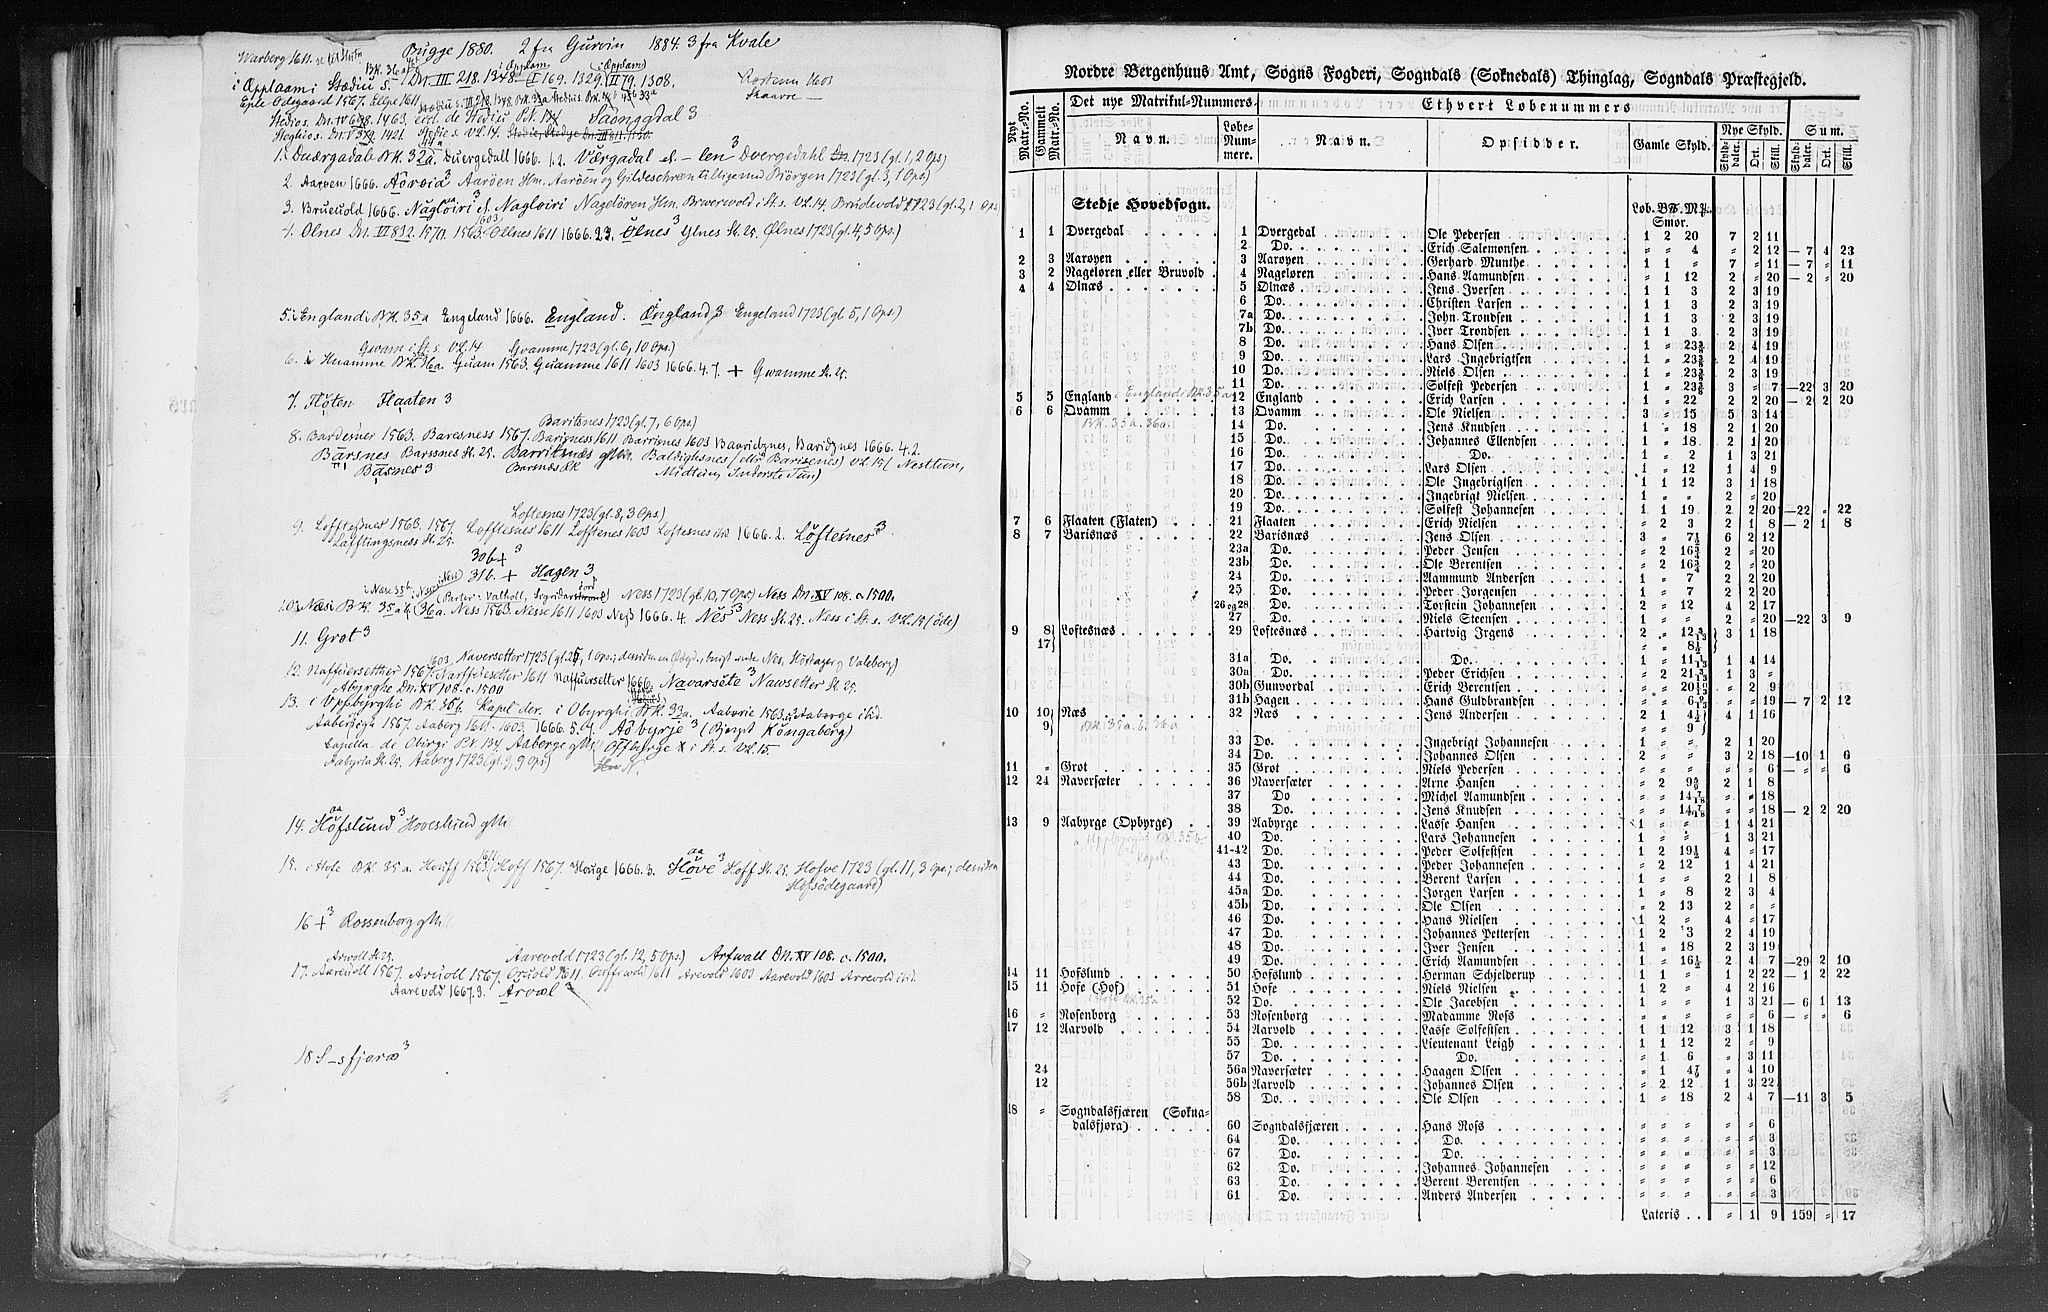 Bugge 1880. 2 fra Gurvin 1884. 3 fra Kvale
Warberg 1611.
i Øpplaam i Stædiu s. Dn. III 218. 1348 I 169. 1329. II 79. 1308.
Skaarre —
Eple Ødegaard 1567. Ellje 1611
Stedios. Dn. IV 698. 1463. eccl. de Stediu Saonggdal 3
Steghios. Dn. V 379. 1421.
1. i Duærgadale BK. 32a. Duergedall 1666. 1.2. Værgadal el. – len 3 Dvergedahl 1723 (gl. 1, 2 Ops)
2. Aarven 1666. Aoröid 3 Aarøen Hm. Aarøen og Gildeschræn tilligemed Biörgen 1723 (gl. 3, 1 Ops)
3. Bruevold 1666. Naglöiri el. Nagloiri Nageløren Hm. Brverwold i St. s. VL. 14. Brudevold 1723 (gl. 2, 1 Ops)
4. Olnes Dn. VI 832. 1570. 1563. Ollnes 1611 1666. 23. Olnes 3 Ylnes St. 25. Ølnes 1723 (gl. 4, 5 Ops.)
5. i Englande BK. 35a Engeland 1666. England. Öngland 3 Engeland 1723 (gl. 5, 1 Ops.)
Gwam i St. s. VL. 14 Gvamme 1723 (gl. 6, 10 Ops)
6. i Huamme BK. 36a. Guam 1563. Guamme 1611 1603 1666. 4. 7. + Gwamme St. 25.
7. Flöten Flaaten 3
Baritsnes 1723 (gl. 7, 6 Ops)
8. Bardesner 1563. Baresness 1567. Barisness 1611 Barrisnes 1603 Bauridznes, Baridznes 1666. 4. 2.
Barsnes Barssnes St. 25. Barritsnæs gMk. Baldighesnes (eller Barisenes) VL. 15 (Nesttun,
Basnes 3 Barsnæs EK Midtun, Inderste Tun)
Loftesnes 1723 (gl. 8, 3 Ops)
9. Loffteßner 1563. 1567. Lofftesnes 1611 Lofftenes 1603 Loftesnes ibid 1666. 2. Löftesnes 3
Lafftingsness St. 25.
30b + 3
31b. + Hagen 3
Ness 1723 (gl. 10, 7 Ops) Ness Dn. XV 108. c. 1500.
10. i Næsi BK. 35ab, 36a. Ness 1563. Nesse 1611 1603 Neß 1666. 4. Nes 3 Ness St. 25. Ness i St. s. VL. 15 (öde)
11. Grot 3
Naversetter 1723
12. Naffuersetther 1567. Narffuesetter 1611 Naffuersetter 1666. Navarsete 3 Nawsetter St. 25.
Abyrghe Dn. XV 108. c. 1500
13. i Uppbyrghi BK. 35b. Kapel der. i Obyrghi BK. 33a. Aaberie 1563. Aaberge ibid.
Aaberge 1567. Aaberg 1611. 1603. 1666. 5. 9. Aobyrje 3 (Bjergit Kongaberg)
Capella de Obirgi BV. 134. Aaberge gMk Offberge i St. s. VL. 15
Aabyrla St. 25. Aaberg 1723 (gl. 9, 9 Ops)
14. Höfslund 3 Hoveslund gMk
15. i Hofe BK. 35a. Houff 1563. Hoff 1567. Houge 1666. 3. Hove 3 Hoff St. 25. Hofve 1723 (gl. 11, 3 Ops; desuden
Hofsödegaard)
16 + 3 Rossenborg gMk
Arwoll St. 25. Aarevold 1723 (gl. 12, 5 Ops.) Arfwall Dn. XV 108. c. 1500.
17. Aaruoll 1567. Aruoll 1567. Aruold 1611. Arevold 1603 Aarevold 1603 Arrevold ibid.
Aarevold 1667. 9. Årvæl
18 S–sfjøræ 3
Nordre Bergenhuns Amt, Sogns Fogderi, Sogndals (Soknedals) Thinglag, Sogndals Præstegjeld.
Nyt Matr.-No. Gammelt Matr.-No. Det nye Matrikul-Nummers Ethvert Løbenummers
Navn. Løbe-Nummere. Navn. Opsidder. Gamle Skyld. Nye Skyld. Sum.
Skylddaler. Ort. Skill. Skylddaler. Ort. Skill.
Stedje Hovedsogn. Løb. BB. Mk. Smør.
1 1 Dvergedal 1 Dvergedal Ole Pedersen 1 2 20 7 2 11
2 Do. Erich Salemonsen " " 4 " 2 12 — 7 4 23
2 3 Aarøyen 3 Aarøyen Gerhard Munthe 1 1 " 7 " 11 — 7 " 11
3 2 Nageløren eller Bruvold 4 Nageløren Hans Aamundsen " 1 12 2 " 20 — 2 " 20
4 4 Ølnæs 5 Ølnæs Jens Iversen 1 1 3 2 3 19
6 Do. Christen Larsen 1 1 3 2 3 19
7a Do. John Trondsen 1 1 3 2 3 19
7b Do. Iver Trondsen 1 1 3 2 3 19
8 Do. Hans Olsen 1 " 23 3/8 2 4 19
9 Do. Lars Ingebrigtsen 1 " 23 3/8 2 4 19
10 Do. Niels Olsen 1 " 23 3/8 2 3 19
11 Do. Solfest Pedersen 1 " 23 3/8 3 " 7 —22 3 20
5 5 England i Englande BK. 35a 12 England Erich Larsen 1 " 22 2 2 20 — 2 2 20
6 6 Qvamm 13 Qvamm Ole Nielsen 3 " 15 5 3 14
BK. 35a. 36a. 14 Do. Jens Knudsen 1 " 18 2 1 20
15 Do. Johannes Ellendsen 1 " 18 2 1 20
16 Do. Do. 1 " 2 1 3 21
17 Do. Lars Olsen 1 " 12 1 4 9
18 Do. Ole Ingebrigtsen 1 1 12 3 1 18
20 Do. Ingebrigt Nielsen 1 " " 2 " 20
19 Do. Solfest Johannesen 1 1 19 2 2 20 —22 " 22
7 6 Flaaten (Flaten) 21 Flaaten Erich Nielsen " 2 3 2 1 8 — 2 1 8
8 7 Barisnæs 22 Barisnæs Jens Olsen 3 " 7 1/2 6 2 12
23a Do. Peder Jensen " 2 16 3/4 2 " 20
23b Do. Ole Berentsen " 2 16 3/4 2 " 20
24 Do. Aammund Andersen 1 " 7 2 2 20
25 Do. Peder Jørgensen 1 " 7 2 2 20
26 og 28 Do. Torstein Johannesen 2 " 12 4 2 17
27 Do. Niels Steensen 1 " " 2 " 20 —22 3 9
9 8 Loftesnæs 29 Loftesnæs Hartvig Irgens 2 " 12 3/13 3 1 18
17 " " 8 1/2
31a Do. Do. 1 " 11 1/13 1 4 14
30a Do. Peder Erichsen " 2 21 3/13 1 3 "
30b Gunvordal Erich Berentsen " " 20 10/13 " 2 9
31b Hagen Hans Guldbrandsen " " 6 9/13 " " 19 — 7 2 12
10 10 Næs 32 Næs Jens Andersen 2 1 4 1/2 4 1 16
9 BK. 35a. b. 36a " " 9
33 Do. Ingebrigt Johannesen 1 " " 2 1 20
34 Do. Johannes Olsen 2 " " 3 2 18 —10 1 6
11 " Grot 35 Grot Niels Pedersen " " " " " 6 — " " 6
12 24 Naversæter 36 Naversæter Arne Hansen " 2 9 5/9 2 1 8
37 Do Michel Aamundsen " " 14 7/18 " " 18
38 Do. Jens Knudsen " " 14 7/18 " " 18 — 2 2 20
13 9 Aabyrge (Opbyrge) 39 Aabyrge Lasse Hansen 1 " " 1 4 21
40 Do. Lars Johannesen 1 " " 1 3 21
41-42 Do. Peder Solfestsen 1 2 19 1/2 4 " 17
43 Do. Peder Johannesen " 2 12 1 4 21
44 Do. Berent Larsen 1 " " 2 1 8
45a Do. Jørgen Larsen " " 8 2 3 4
45b Do. Ole Olsen " 2 13 2 " "
46 Do. Hans Nielsen 1 2 " " 4 17
47 Do. Johannes Pettersen 1 2 3 2 4 19
48 Do. Iver Jensen 1 " 18 2 3 19
49 Do. Erich Aamundsen 1 " 16 1/2 2 4 7 —29 2 10
14 11 Hofslund 50 Hofslund Herman Schjelderup 1 1 " 1 2 22 — 1 2 22
15 11 Hofe (Hof) 51 Hofe Niels Nielsen 1 2 " 4 2 16
i Hofe BK. 35a 52 Do. Ole Jacobsen 1 " " 1 3 21 — 6 1 13
16 " Rosenborg 53 Rosenborg Madamme Ross " " " " " 6 — " " 6
17 12 Aarvold 54 Aarvold Lasse Solfestsen 1 1 12 3 1 18
55 Do. Lieutenant Leigh 1 1 12 2 " 9
57 Do. Do. " 1 6 " 3 11
24 56a Naversæter Haagen Olsen " 1 4 7/9 " 4 10
12 56b Aarvold Johannes Olsen " 2 12 1 3 22
58 Do. Ole Olsen 1 " 18 2 4 7 —11 3 5
18 " Sogndalsfjæren (Sokna-
dalsfjøra) 60 Sogndalsfjæren Hans Ross " " " " " 6
64 Do. Do. " " " " " 3
67 Do. Do. " " " " " 3
62 Do. Johannes Johannesen " " " " " 12
63 Do. Berent Berentsen " " " " " 6
61 Do. Anders Andersen " " " " " 3
Lateris . . " 1 9 159 " 17